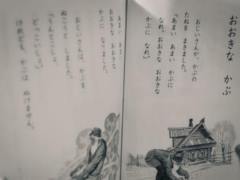 おおきな　かぶ
おじいさんが、かぶの
たねを　まきました。
「あまい　あまい　かぶに
なれ。おおきな　おおきな
かぶに　なれ。」
あまい　あまい
おおきな　おおきな
かぶに　なりました。
おじいさんは、かぶを
ぬこうと　しました。
「うんとこしょ、
どっこいしょ。」
けれども、かぶは　ぬけません。